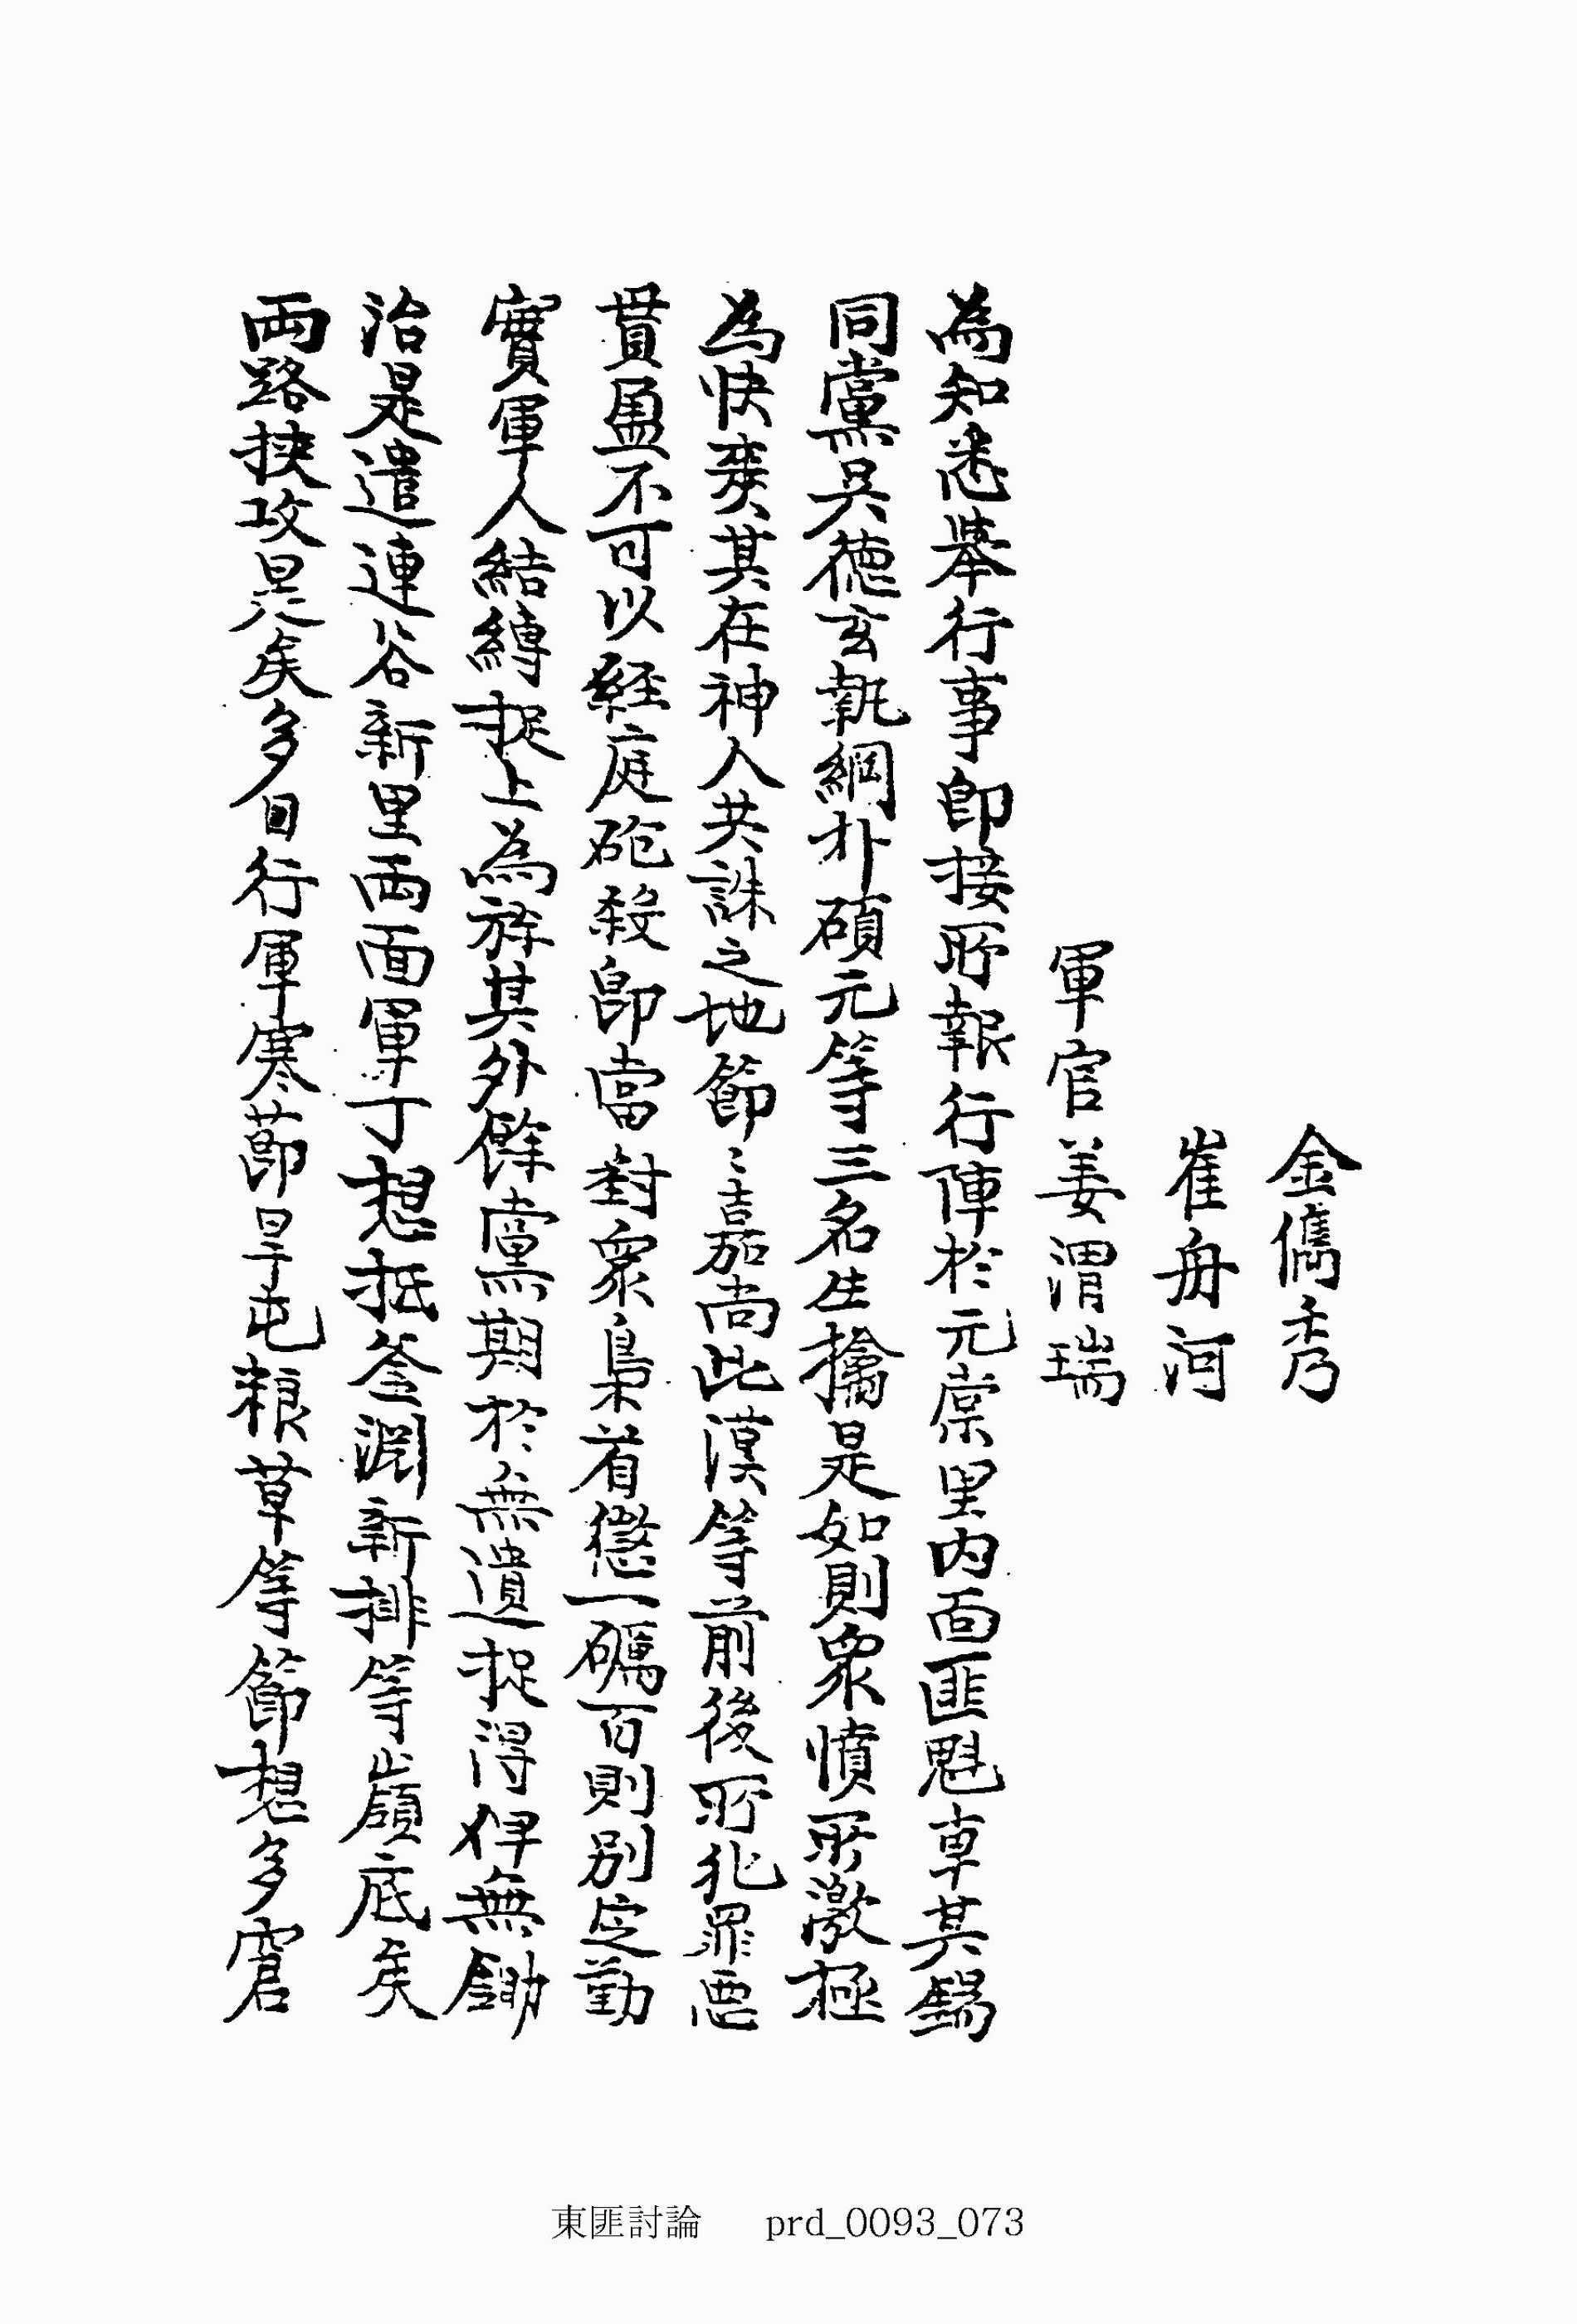 金儁秀
崔舟河
軍官姜渭瑞
為知悉擧行事卽接所報行陣於元棠里內面匪魁車其錫
同黨吳德玄執綱朴碩元等三名生擒是如則衆憤所激極
為快爽其在神人共誅之地節〻嘉尙此漢等前後所犯罪惡
貫盈不可以經庭砲殺卽當對衆梟首懲一礪百則別定勤
實軍人結縛捉上為旀其外餘黨期於無遺捉得俾無鋤
治是遣連谷新里兩面軍丁想抵釜淵新排等嶺底矣
兩路挾攻是矣多日行軍寒節旱屯粮草等節想多窘